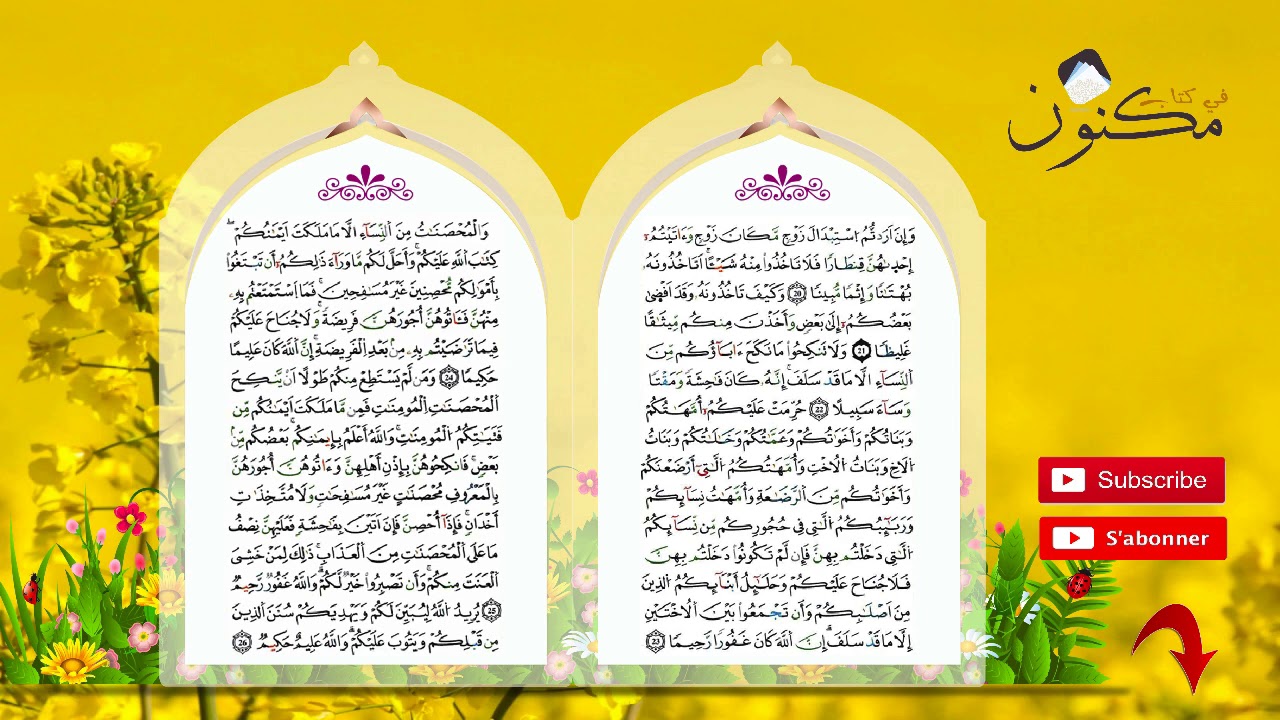 في كتاب
مكنون
وَإِنَ اَرَدتُّمُ اُسْتِبْدَالَ زَوْجٍ مَّكَانَ زَوْجٍ وَءَاتَيْتُمُۥٓ
إِحْدٜىٰهُنَّ قِنطَارًا فَلَا تَاخُذُوا۟ مِنْهُ شَيْـًٔا اَتَاخُذُونَهُۥ
بُهْتَٰنًا وَإِثْمًا مُّبِينًا 20 وَكَيْفَ تَاخُذُونَهُۥ وَقَدَ اَفْضٜىٰ
بَعْضُكُمُۥٓ إِلَىٰ بَعْضٍ وَأَخَذْنَ مِنكُم مِّيثَٰقًا
غَلِيظًا 21 وَلَا تَنكِحُوا۟ مَا نَكَحَ ءَابَآؤُكُم مِّنَ
اَلنِّسَآءِ الَّا مَا قَد سَّلَفَ إِنَّهُۥ كَانَ فَٰحِشَةً وَمَقْتًا
وَسَآءَ سَبِيلًا 22 حُرِّمَتْ عَلَيْكُمُۥٓ أُمَّهَٰتُكُمْ
وَبَنَاتُكُمْ وَأَخَوَٰتُكُمْ وَعَمَّٰتُكُمْ وَخَٰلَٰتُكُمْ وَبَنَاتُ
اُلَاخِ وَبَنَاتُ اُلُاخْتِ وَأُمَّهَٰتُكُمُ اُلَّٰتِےٓ أَرْضَعْنَكُمْ
وَأَخَوَٰتُكُم مِّنَ اَلرَّضَٰعَةِ وَأُمَّهَٰتُ نِسَآئِكُمْ
وَرَبَٰٓئِبُكُمُ اُلَّٰتِے فِي حُجُورِكُم مِّن نِّسَآئِكُمُ
اُلَّٰتِے دَخَلْتُم بِهِنَّ فَإِن لَّمْ تَكُونُوا۟ دَخَلْتُم بِهِنَّ
فَلَا جُنَاحَ عَلَيْكُمْ وَحَلَٰٓئِلُ أَبْنَآئِكُمُ اُلذِينَ
مِنَ اَصْلَٰبِكُمْ وَأَن تَجْمَعُوا۟ بَيْنَ اَلُاخْتَيْنِ
إِلَّا مَا قَد سَّلَفَ إِنَّ اَللَّهَ كَانَ غَفُورًا رَّحِيمًا 23
وَالْمُحْصَنَٰتُ مِنَ اَلنِّسَآءِ الَّا مَا مَلَكَتَ اَيْمَٰنُكُمْ
كِتَٰبَ اَللَّهِ عَلَيْكُمْ وَأَحَلَّ لَكُم مَّا وَرَآءَ ذَٰلِكُمُۥٓ أَن تَبْتَغُوا۟
بِأَمْوَٰلِكُم مُّحْصِنِينَ غَيْرَ مُسَٰفِحِينَ فَمَا اَسْتَمْتَعْتُم بِهِۦ
مِنْهُنَّ فَـَٔاتُوهُنَّ أُجُورَهُنَّ فَرِيضَةً وَلَا جُنَاحَ عَلَيْكُمْ
فِيمَا تَرَٰضَيْتُم بِهِۦ مِنۢ بَعْدِ اِلْفَرِيضَةِ إِنَّ اَللَّهَ كَانَ عَلِيمًا
حَكِيمًا 24 وَمَن لَّمْ يَسْتَطِعْ مِنكُمْ طَوْلًا اَنْ يَّنكِحَ
اَلْمُحْصَنَٰتِ اِلْمُومِنَٰتِ فَمِن مَّا مَلَكَتَ اَيْمَٰنُكُم مِّن
فَتَيَٰتِكُمُ اُلْمُومِنَٰتِ وَاللَّهُ أَعْلَمُ بِإِيمَٰنِكُم بَعْضُكُم مِّنۢ
بَعْضٍ فَانكِحُوهُنَّ بِإِذْنِ أَهْلِهِنَّ وَءَاتُوهُنَّ أُجُورَهُنَّ
بِالْمَعْرُوفِ مُحْصَنَٰتٍ غَيْرَ مُسَٰفِحَٰتٍ وَلَا مُتَّخِذَٰتِ
أَخْدَانٍ فَإِذَآ أُحْصِنَّ فَإِنَ اَتَيْنَ بِفَٰحِشَةٍ فَعَلَيْهِنَّ نِصْفُ
مَا عَلَى اَلْمُحْصَنَٰتِ مِنَ اَلْعَذَابِ ذَٰلِكَ لِمَنْ خَشِيَ
اَلْعَنَتَ مِنكُمْ وَأَن تَصْبِرُوا۟ خَيْرٌ لَّكُمْ وَاللَّهُ غَفُورٌ رَّحِيمٌ
25 يُرِيدُ اُللَّهُ لِيُبَيِّنَ لَكُمْ وَيَهْدِيَكُمْ سُنَنَ اَلذِينَ
مِن قَبْلِكُمْ وَيَتُوبَ عَلَيْكُمْ وَاللَّهُ عَلِيمٌ حَكِيمٌ 26
Subscribe
S'abonner